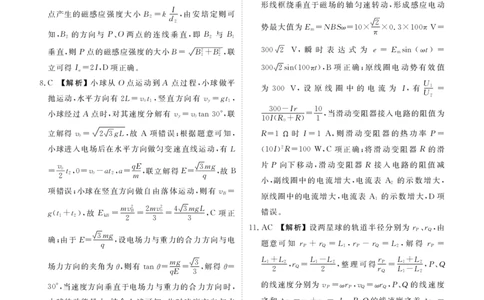 点产生的磁感应强度大小 B₂=k I/d,由安培定则可
知,B₂ 的方向与 P、O 两点的连线垂直,即 B₂ 与 B₁
垂直,则 P 点的磁感应强度的大小 B=√(B₁²+B₂²),联
立可得 Iₓ=2I,D 项正确。
8. C 【解析】小球从 O 点运动到 A 点过程,小球做平
抛运动,水平方向有 2L=vₜt₁,竖直方向有 vᵧ=gt₁,
小球经过 A 点时,对其速度分解有 vᵧ=vₜtan 30°,联
立解得 vₜ=√(2√3gL),故 A 项错误;根据题意可知,
小球进入电场后在水平方向做匀变速直线运动,有 L
=vₜ/2 t₂,0=vₜ-at₂,a=qE/m,联立解得 E=√3mg/q,故 B
项错误;小球在竖直方向做自由落体运动,则有 v_B=
g(t₁+t₂),故 E_kB=mv_B²/2=2mvₜ²/3=4√3mgL/3,C 项正
确;由于 E=√3mg/q,设电场力与重力的合力方向与电
场力方向的夹角为 θ,则有 tan θ=mg/qE=√3/3,解得 θ=
30°,当速度方向垂直于电场力与重力的合力方向时,
形线框绕垂直于磁场的轴匀速转动,形成感应电动
势最大值为 Eₘ=NBSω=10×√2/π×0.3×100π V=
300√2 V,瞬时表达式为 e=Eₘsin(ωt)=
300√2sin(100πt),B 项正确;原线圈电动势有效值
为 300 V,设原线圈中的电流为 I,有 U₁/U₂=
(300-Ir)/(10I(R₀+R))=10/1,当滑动变阻器接入电路的阻值为
R=1 Ω 时 I=1 A,则滑动变阻器的热功率 P=
(10I)²R=100 W,C 项正确;将滑动变阻器 R 的滑
片 P 向下移动,滑动变阻器 R 接入电路的阻值减
小,副线圈中的电流增大,电流表 A₂ 的示数增大,
原线圈中的电流增大,电流表 A₁ 的示数增大,D 项
错误。
11. AC 【解析】设两星球的轨道半径分别为 r_P、r_Q,由
题意可知 r_P+r_Q=L₁,r_P-r_Q=L₂,解得 r_P=
(L₁+L₂)/2,r_Q=(L₁-L₂)/2,整理可得 r_P/r_Q=(L₁+L₂)/(L₁-L₂),P、Q
的线速度分别为 v_P=ωr_P、v_Q=ωr_Q,P、Q 的线速度